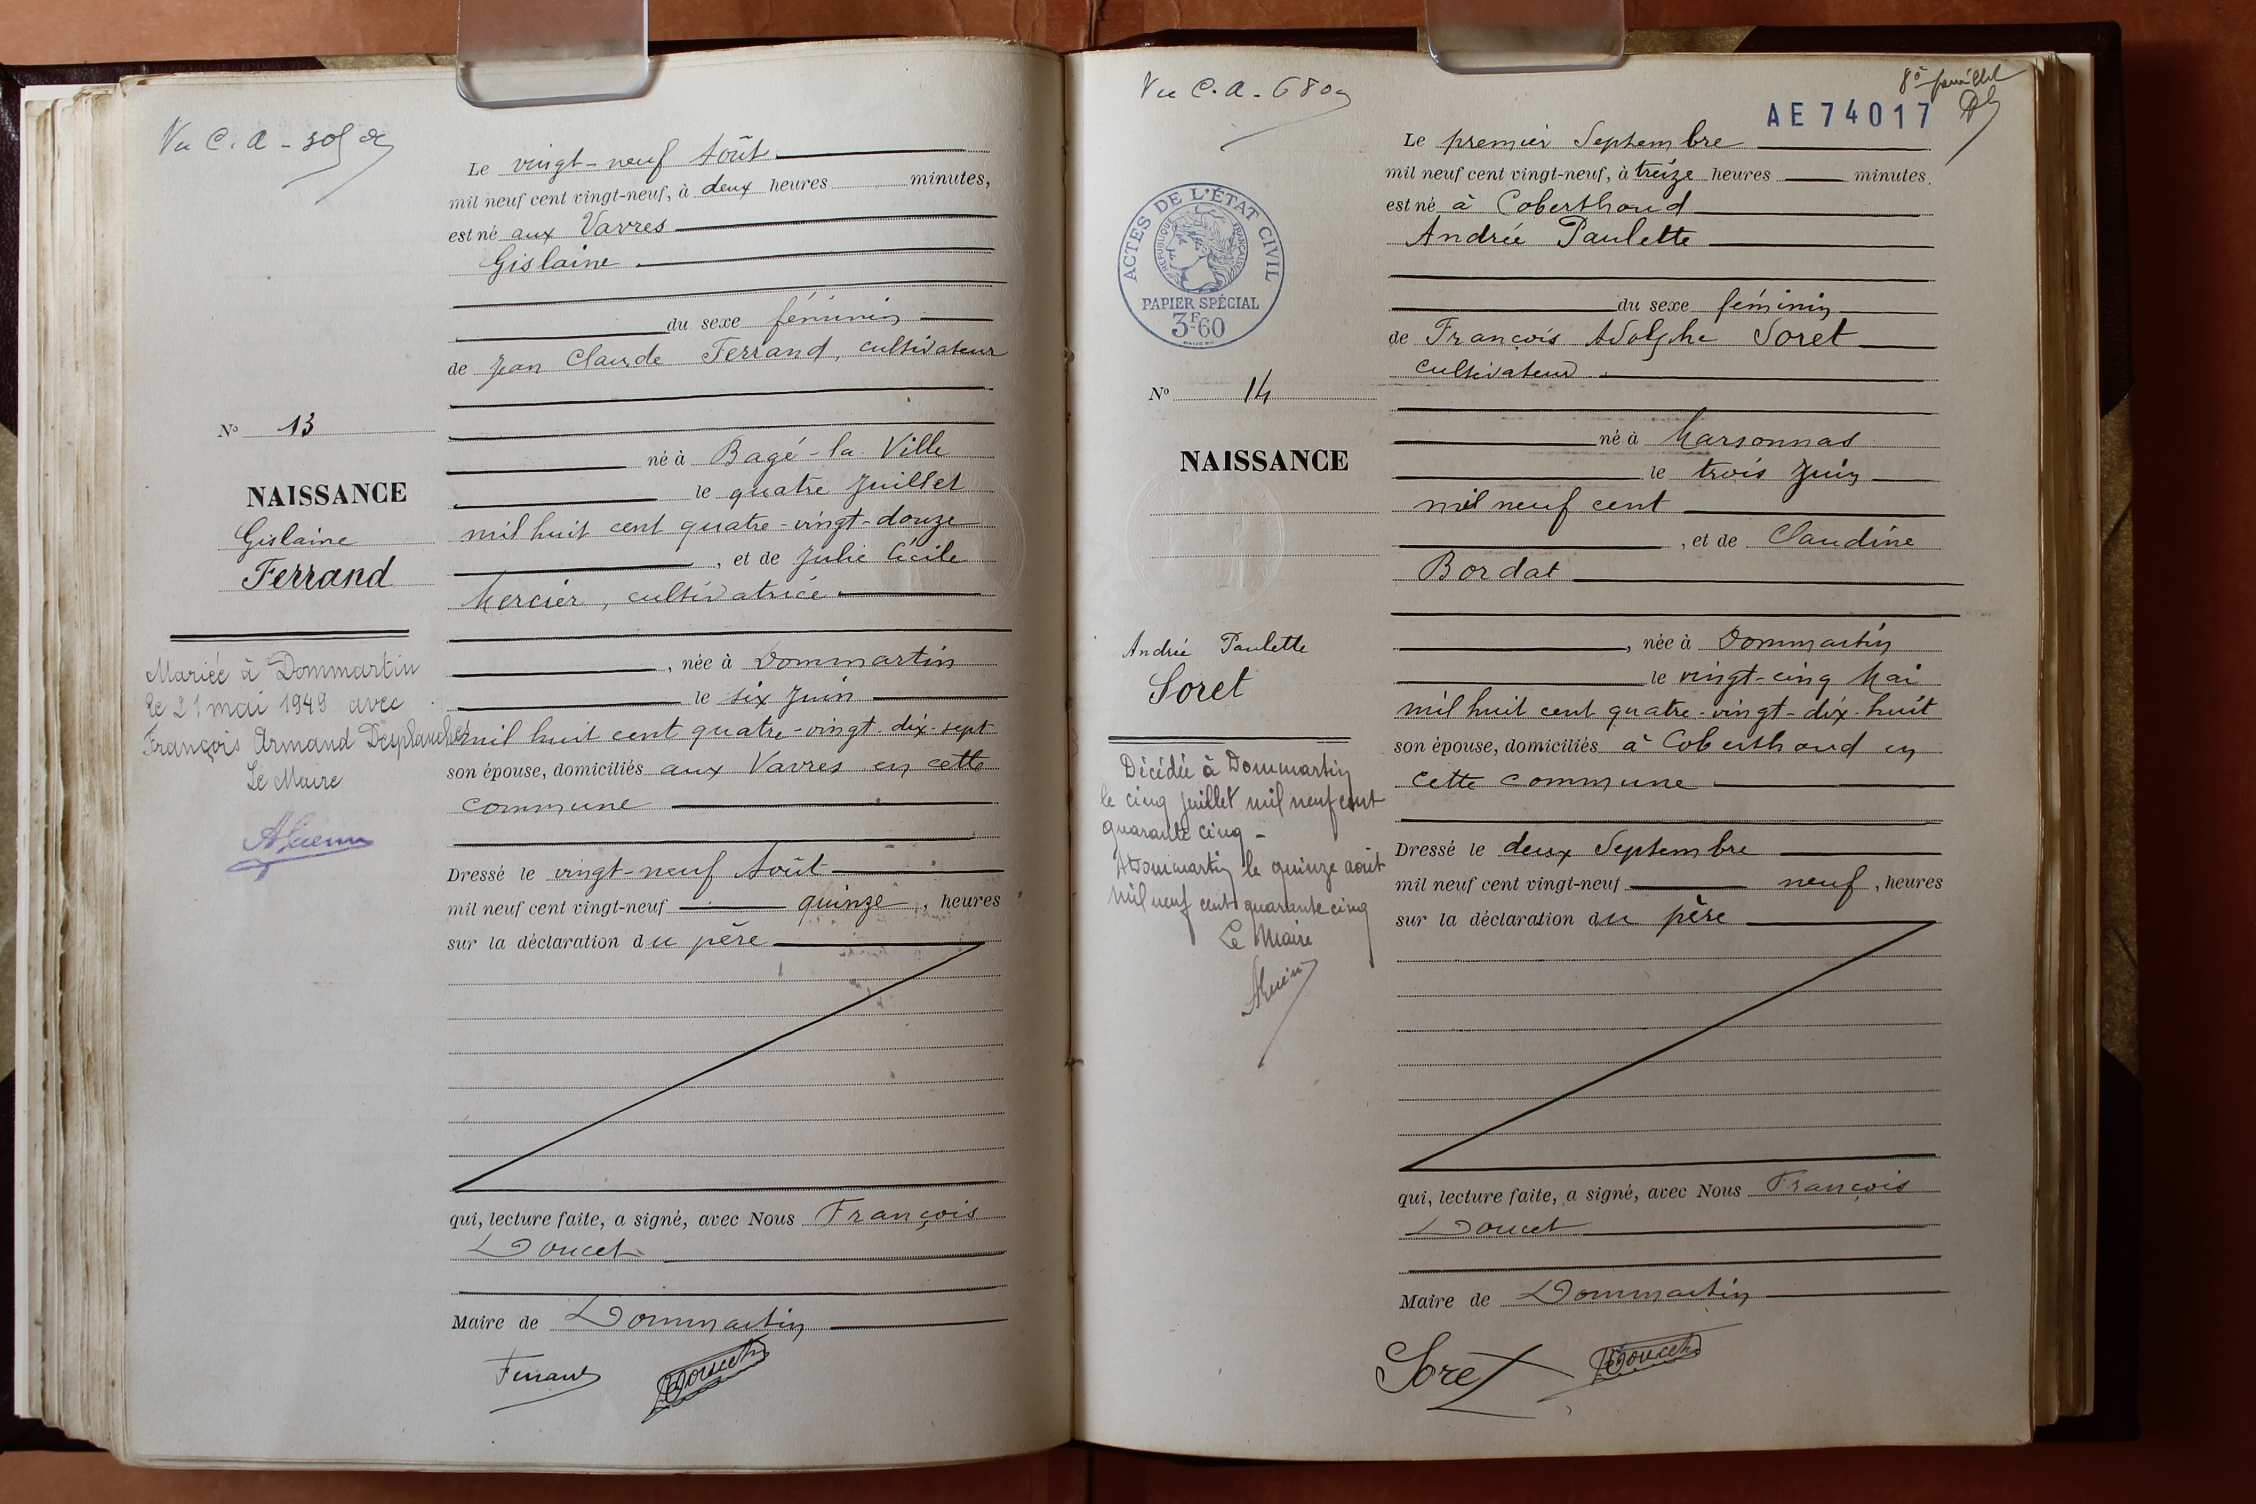 Vu C. A -
Le vingt-neuf Août
mil neuf cent vingt-neuf, à deux heures minutes,
est né aux Vavres
Gislaine
du sexe féminin
de Jean Claude Ferrand, cultivateur
né à Bagé-la Ville
le quatre Juillet
mil huit cent quatre-vingt-douze
, et de Julie Cécile
Mercier, cultivatrice
, née à Dommartin
le six Juin
mil huit cent quatre-vingt-dix-sept
son épouse, domiciliés aux Vavres en cette
commune
Dressé le vingt-neuf Août
mil neuf cent vingt-neuf quinze, heures
sur la déclaration du père
qui, lecture faite, a signé, avec Nous François
Doucet
Maire de Dommartin
Ferrand Doucet
No 13
NAISSANCE
Gislaine
Ferrand
Mariée à Dommartin
le 21 mai 1949 avec
François Armand Desplanches
Le Maire
Vu C. A -
8e feuillet
AE 74017
Le premier Septembre
mil neuf cent vingt-neuf, à treize heures minutes,
est né à Coberthoud
Andrée Paulette
du sexe féminin
de François Adolphe Soret
cultivateur
né à Marsonnas
le trois Juin
mil neuf cent
, et de Claudine
Bordat
, née à Dommartin
le vingt-cinq Mai
mil huit cent quatre-vingt-dix-huit
son épouse, domiciliés à Coberthoud en
cette commune
Dressé le deux Septembre
mil neuf cent vingt-neuf neuf, heures
sur la déclaration du père
qui, lecture faite, a signé, avec Nous François
Doucet
Maire de Dommartin
Soret Doucet
ACTES DE L'ÉTAT CIVIL
RÉPUBLIQUE FRANÇAISE
PAPIER SPÉCIAL
3F.60
No 14
NAISSANCE
Andrée Paulette
Soret
Décédée à Dommartin
le cinq juillet mil neuf cent
quarante cinq -
A Dommartin le quinze août
mil neuf cent quarante cinq
Le Maire